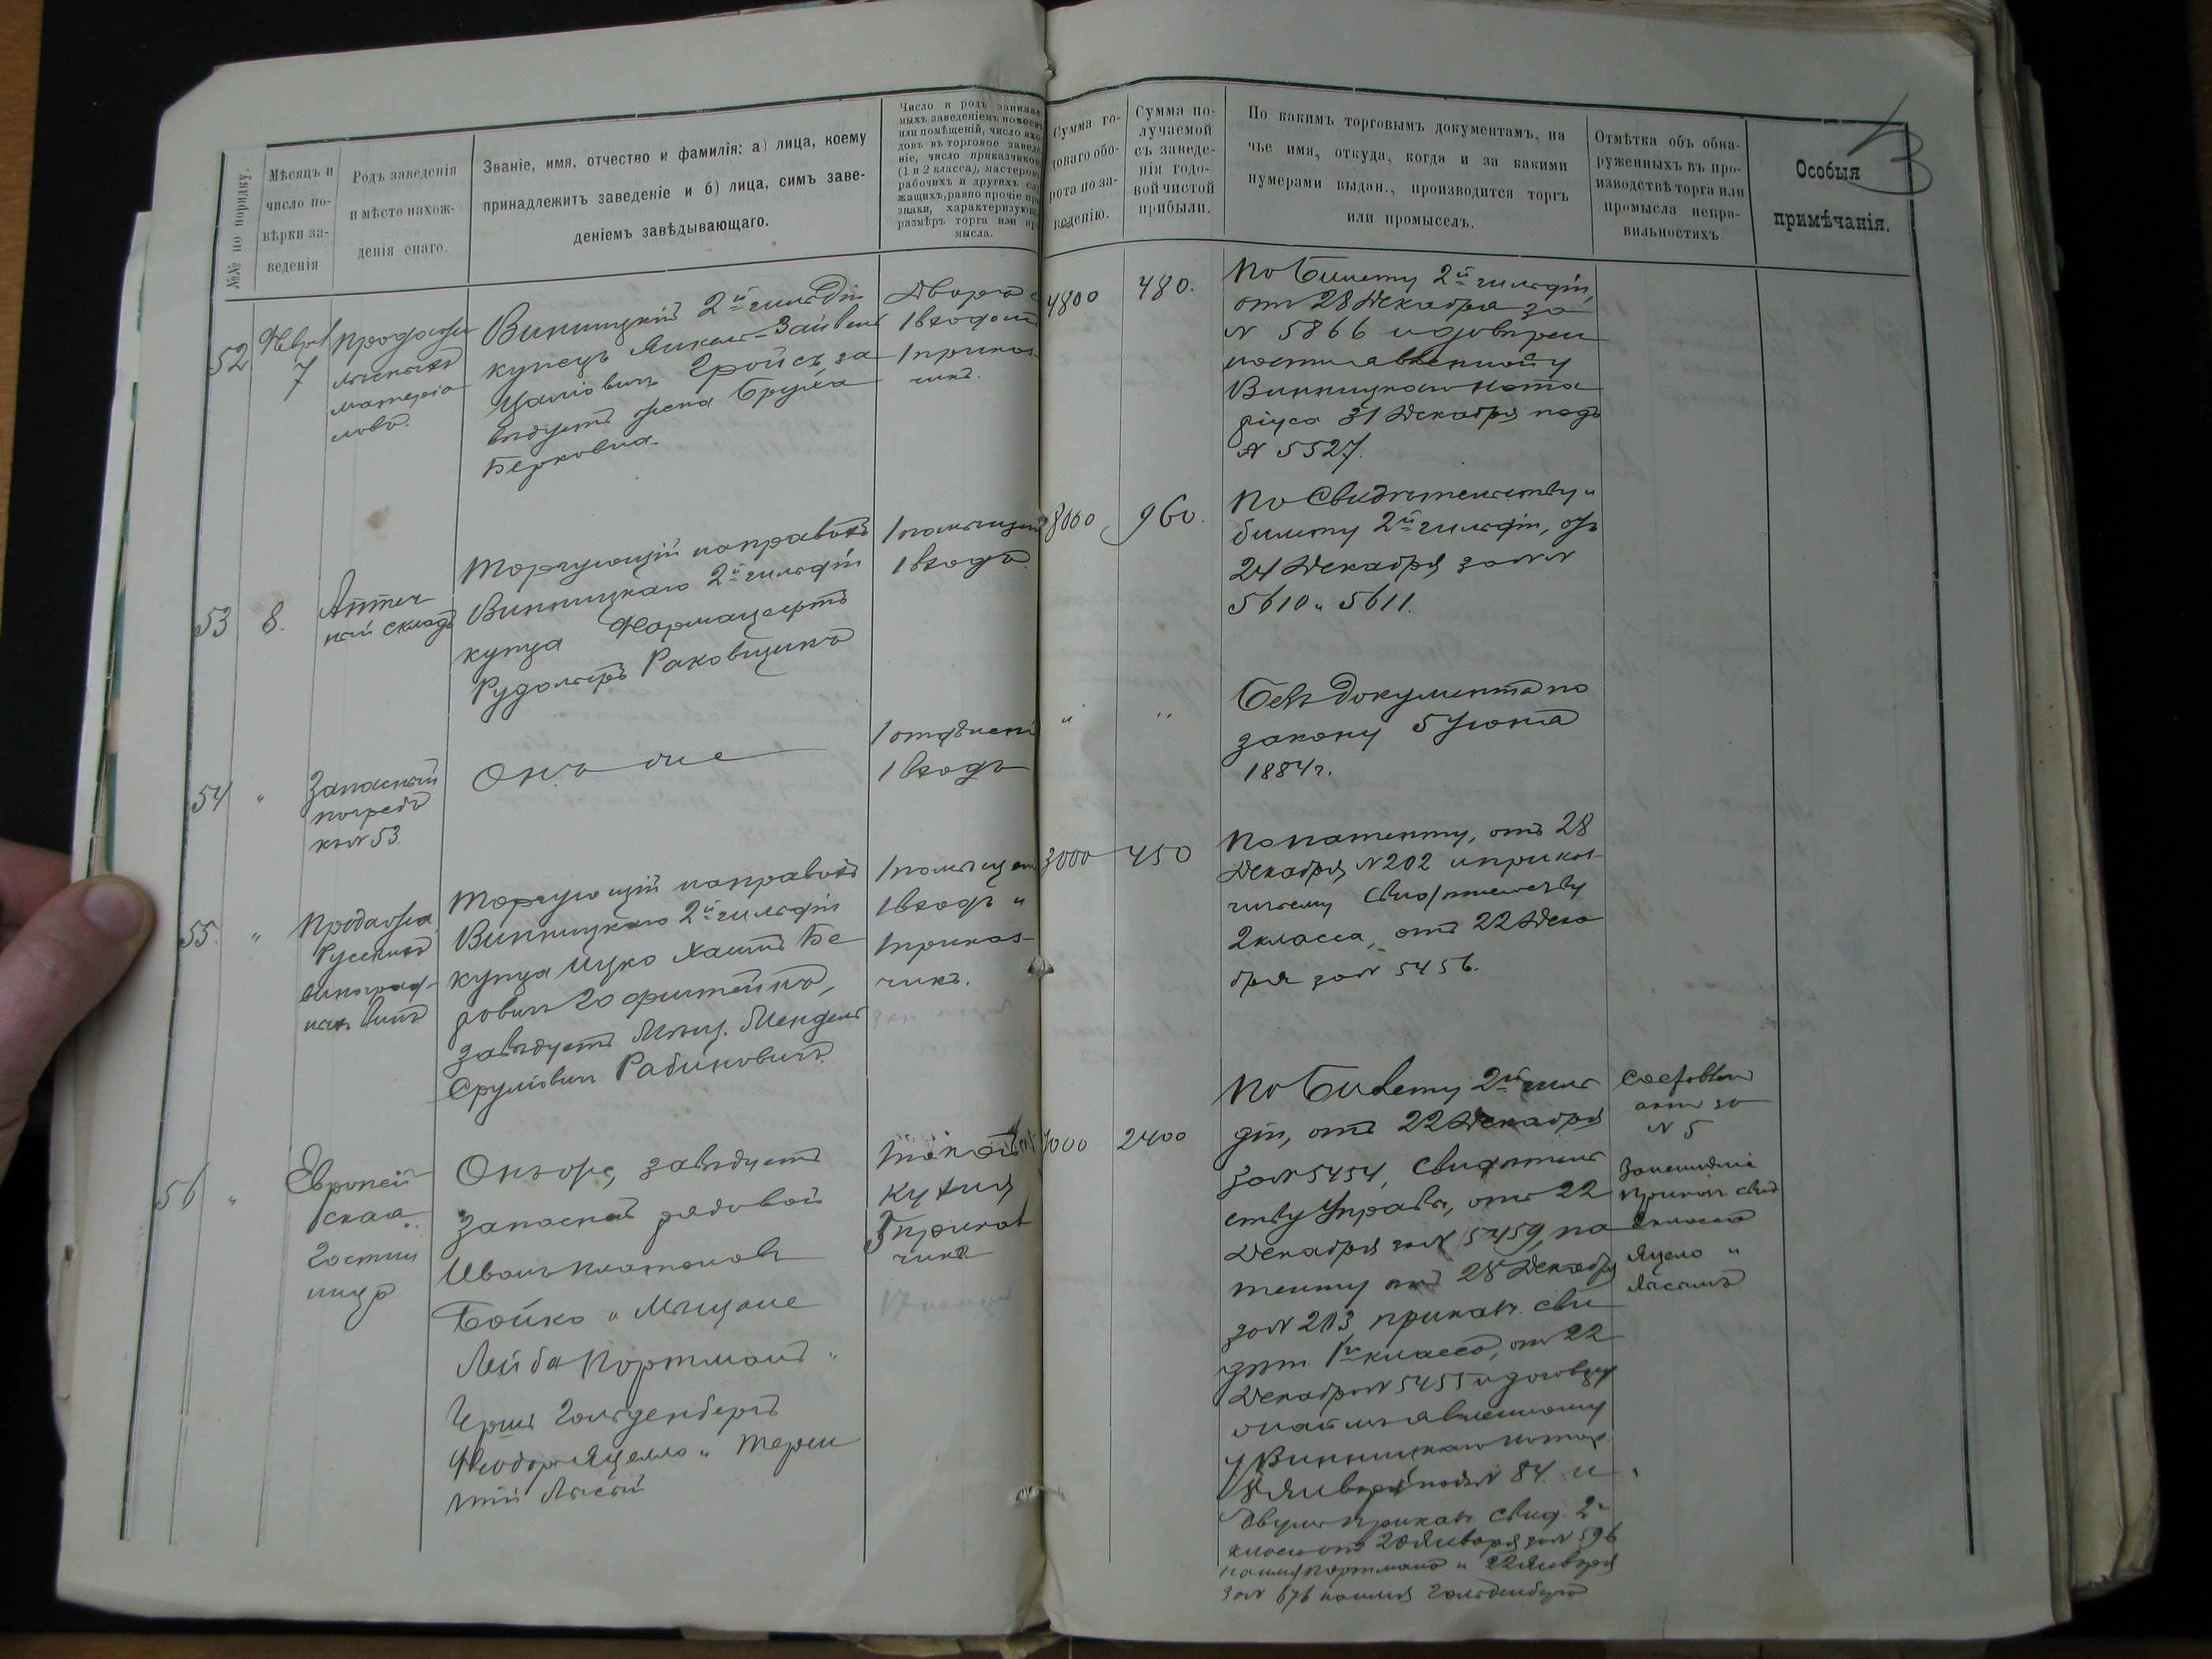 №№ по порядку.
Мѣсяцъ и
число по-
вѣрки за-
веденія
Родъ заведенія
и мѣсто нахож-
денія онаго.
Званіе, имя, отчество и фамилія: а) лица, коему
принадлежитъ заведеніе и б) лица, симъ заве-
деніемъ завѣдывающаго.
Число и родъ занимае-
мыхъ заведеніемъ покоевъ
или помѣщеній, число вхо-
довъ въ торговое заведе-
ніе, число приказчиковъ
(1 и 2 класса), мастеровъ
рабочихъ и другихъ слу-
жащихъ, равно прочіе при-
знаки, характеризующіе
размѣръ торга или про-
мысла.
Сумма го-
доваго обо-
рота по за-
веденію.
Сумма по-
лучаемой
съ заведе-
нія годо-
вой чистой
прибыли.
По какимъ торговымъ документамъ, на
чье имя, откуда, когда и за какими
нумерами выдан., производится торгъ
или промыселъ.
Отмѣтка объ обна-
руженныхъ въ про-
изводствѣ торга или
промысла непра-
вильностяхъ
Особыя
примѣчанія.
52
7
Продажа
лѣсныхъ
матеріа
ловъ.
Винницкій 2й гильдіи
купецъ
Гройсъ, за
вѣдуетъ жена Бруха
Берковна.
1 приказ-
чикъ.
4800
480.
По Билету 2й гильдіи,
отъ 28 Декабря за
№ 5866 и довѣрен
ности явленной у
Винницкаго Нота
ріуса 31 Декабря подъ
№ 5527.
53
8.
Аптеч
ный складъ
Торгующій на правахъ
Винницкаго 2й гильдіи
купца Фармацевтъ
Рудольфъ Раковщикъ
1 помѣщен
1 входъ
8000
960.
По Свидѣтельству и
билету 2й гильдіи, отъ
24 Декабря за №№
5610 и 5611.
54
"
Запасный
погребъ
къ № 53.
Онъ же
1 отдѣлені
1 входъ
"
"
Безъ документа по
закону 5 Іюня
1884 г.
55.
"
Продажа
Русскихъ
виноград-
ныхъ винъ
Торгующій на правахъ
Винницкаго 2й гильдіи
купца Ицко Хаимъ Бе
ровичъ Гофштейнъ,
завѣдуетъ Мѣщ. Мендель
Сруліовичъ Рабиновичъ.
1 помѣщен
1 входъ и
1 приказ-
чикъ.
3000
450
По патенту, отъ 28
Декабря № 202 и приказ-
чичьему свидѣтельству
2 класса, отъ 22 Дека
бря за № 5456.
56
"
Европей
ская
Гостин
ница
Онъ же, завѣдуетъ
запасной рядовой
Иванъ Платоновъ
Бойко и Мѣщане
Лейба Портманъ и
Герш Гольденбергъ
Феодоръ Яцелло и Терен
тій Лысый
кухня
5 приказ
чиковъ
2400
По Билету 2й гиль
діи, отъ 22 Декабря
за № 5454, свидѣтель
ству Управы, отъ 22
Декабря за № 5459, па
тенту отъ 28 Декабря
за № 203 приказ. сви
дѣт. 1го класса, отъ 22
Декабря № 5455 и договору
явленному
у Винницкаго нотар.
8 Января подъ № 84. и
двумъ приказ. свид. 2го
класса отъ 20 Января за № 596
на имя Портмана и 22 Января
за № 676 на имя Гольденберга
Составленъ
актъ за
№ 5